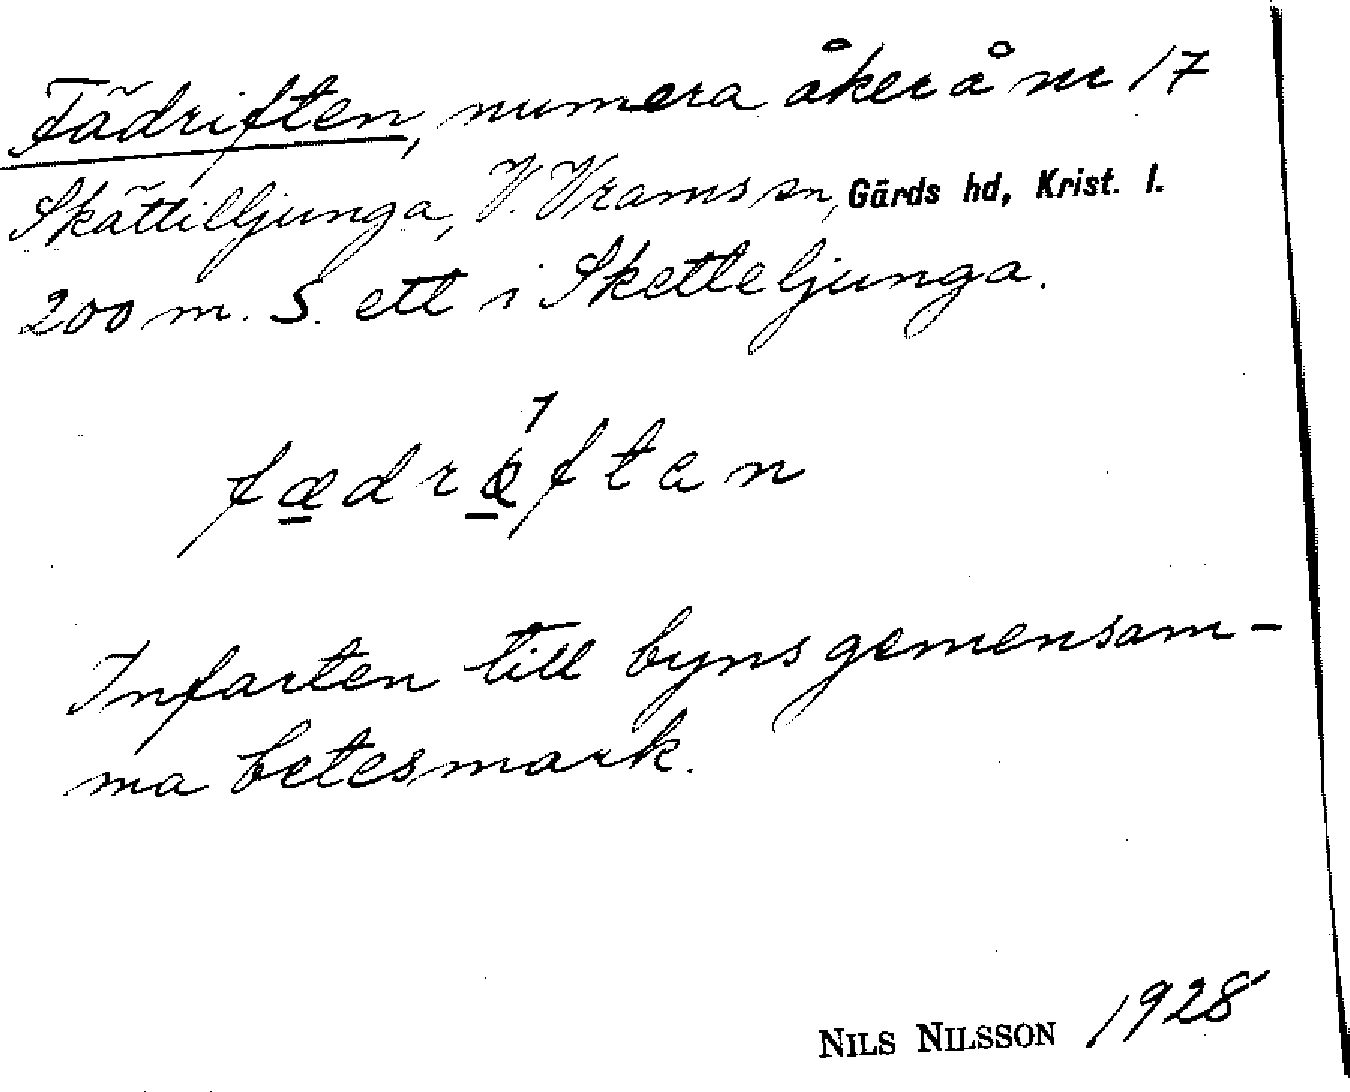 Fädriften, numera åker å nr 17
Skättilljunga, V. Vrams sn, Gärds hd, Krist. l.
200 m. S. ett i Sketteljunga.
fædræ̀ftan
Infarten till byns gemensam-
ma betesmark.
NILS NILSSON 1928